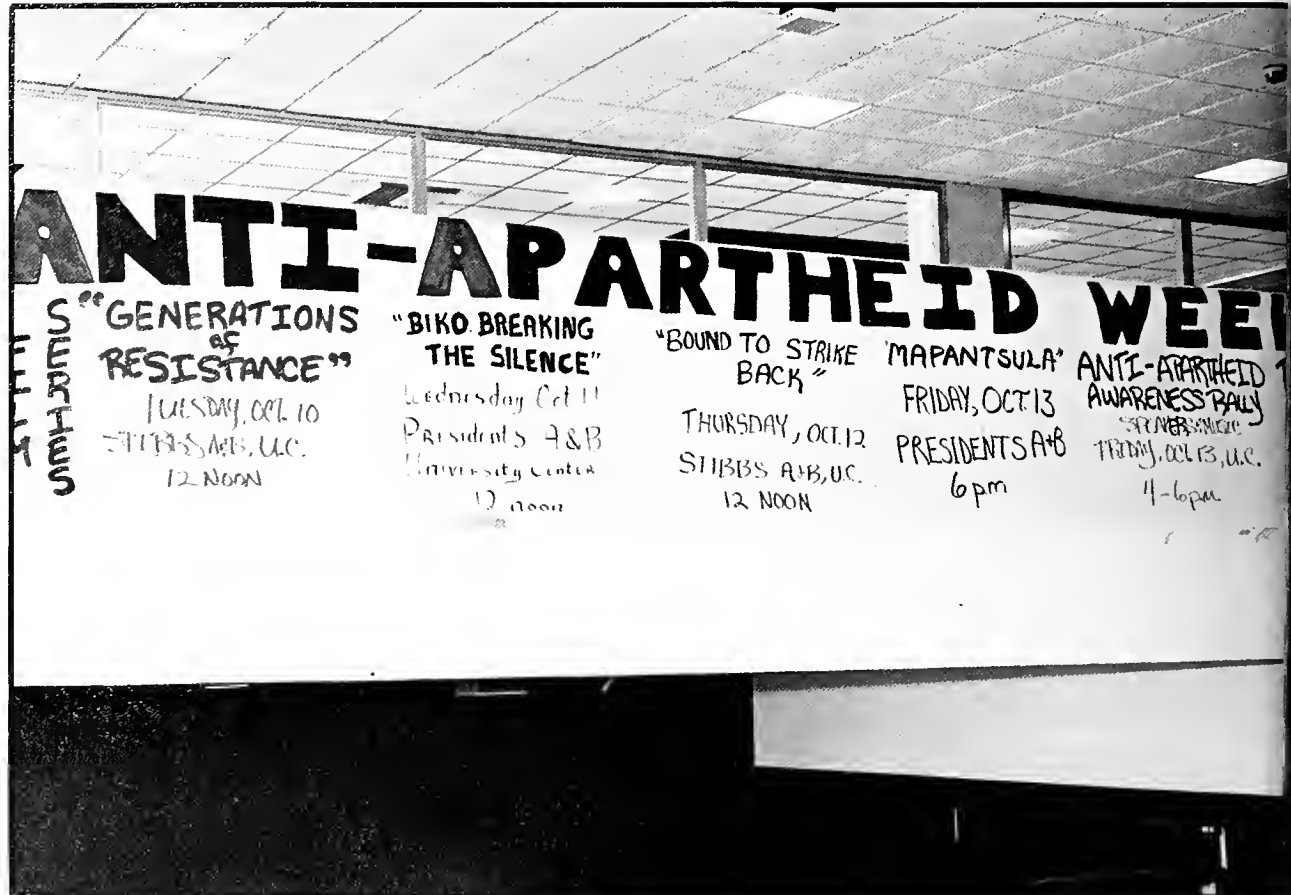 ANTI-APARTHEID WEE
FILM
SERIES
"GENERATIONS
of
RESISTANCE"
TUESDAY, OCT. 10
STIBBS A+B, U.C.
12 NOON
"BIKO BREAKING
THE SILENCE"
Wednesday Oct 11
Presidents A&B
University Center
12 noon
"BOUND TO STRIKE
BACK"
THURSDAY, OCT. 12
STIBBS A+B, U.C.
12 NOON
"MAPANTSULA"
FRIDAY, OCT. 13
PRESIDENTS A+B
6 pm
ANTI-APARTHEID
AWARENESS RALLY
FRIDAY, OCT. 13, U.C.
4-6pm